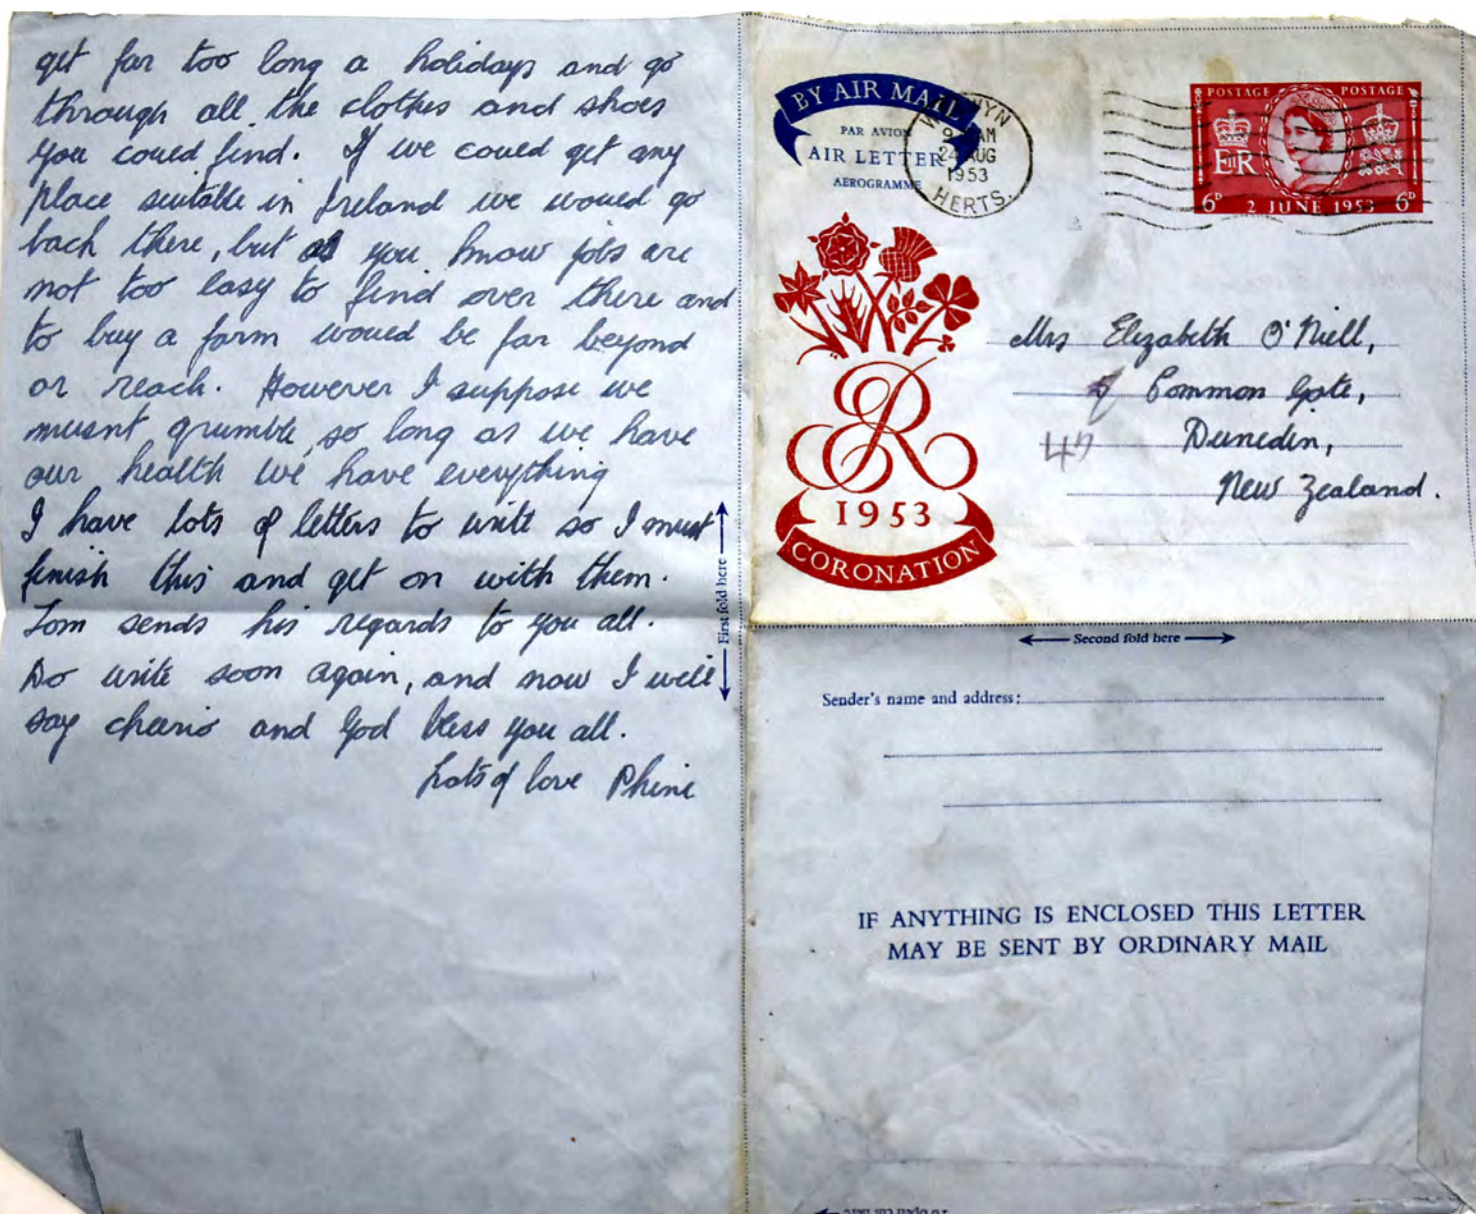 get far too long a holidays and go
through all the clothes and shoes
you could find. If we could get any
place suitable in Ireland we would go
back there, but as you know jobs are
not too easy to find over there and
to buy a farm would be far beyond
or reach. However I suppose we
musnt grumble, so long as we have
our health we have everything
I have lots of letters to write so I must
finish this and get on with them.
Tom sends his regards to you all.
Do write soon again, and now I will
say cheerio and God bless you all.
Lots of love Phine
First fold here
BY AIR MAIL
PAR AVION
AIR LETTER
AEROGRAMME
WELWYN
AM
24 AUG
1953
HERTS.
POSTAGE POSTAGE
EIIR
6D 2 JUNE 1953 6D
ER
1953
CORONATION
Mrs Elizabeth O'Niell,
Common Gate,
Dunedin,
New Zealand.
Second fold here
Sender's name and address:
IF ANYTHING IS ENCLOSED THIS LETTER
MAY BE SENT BY ORDINARY MAIL